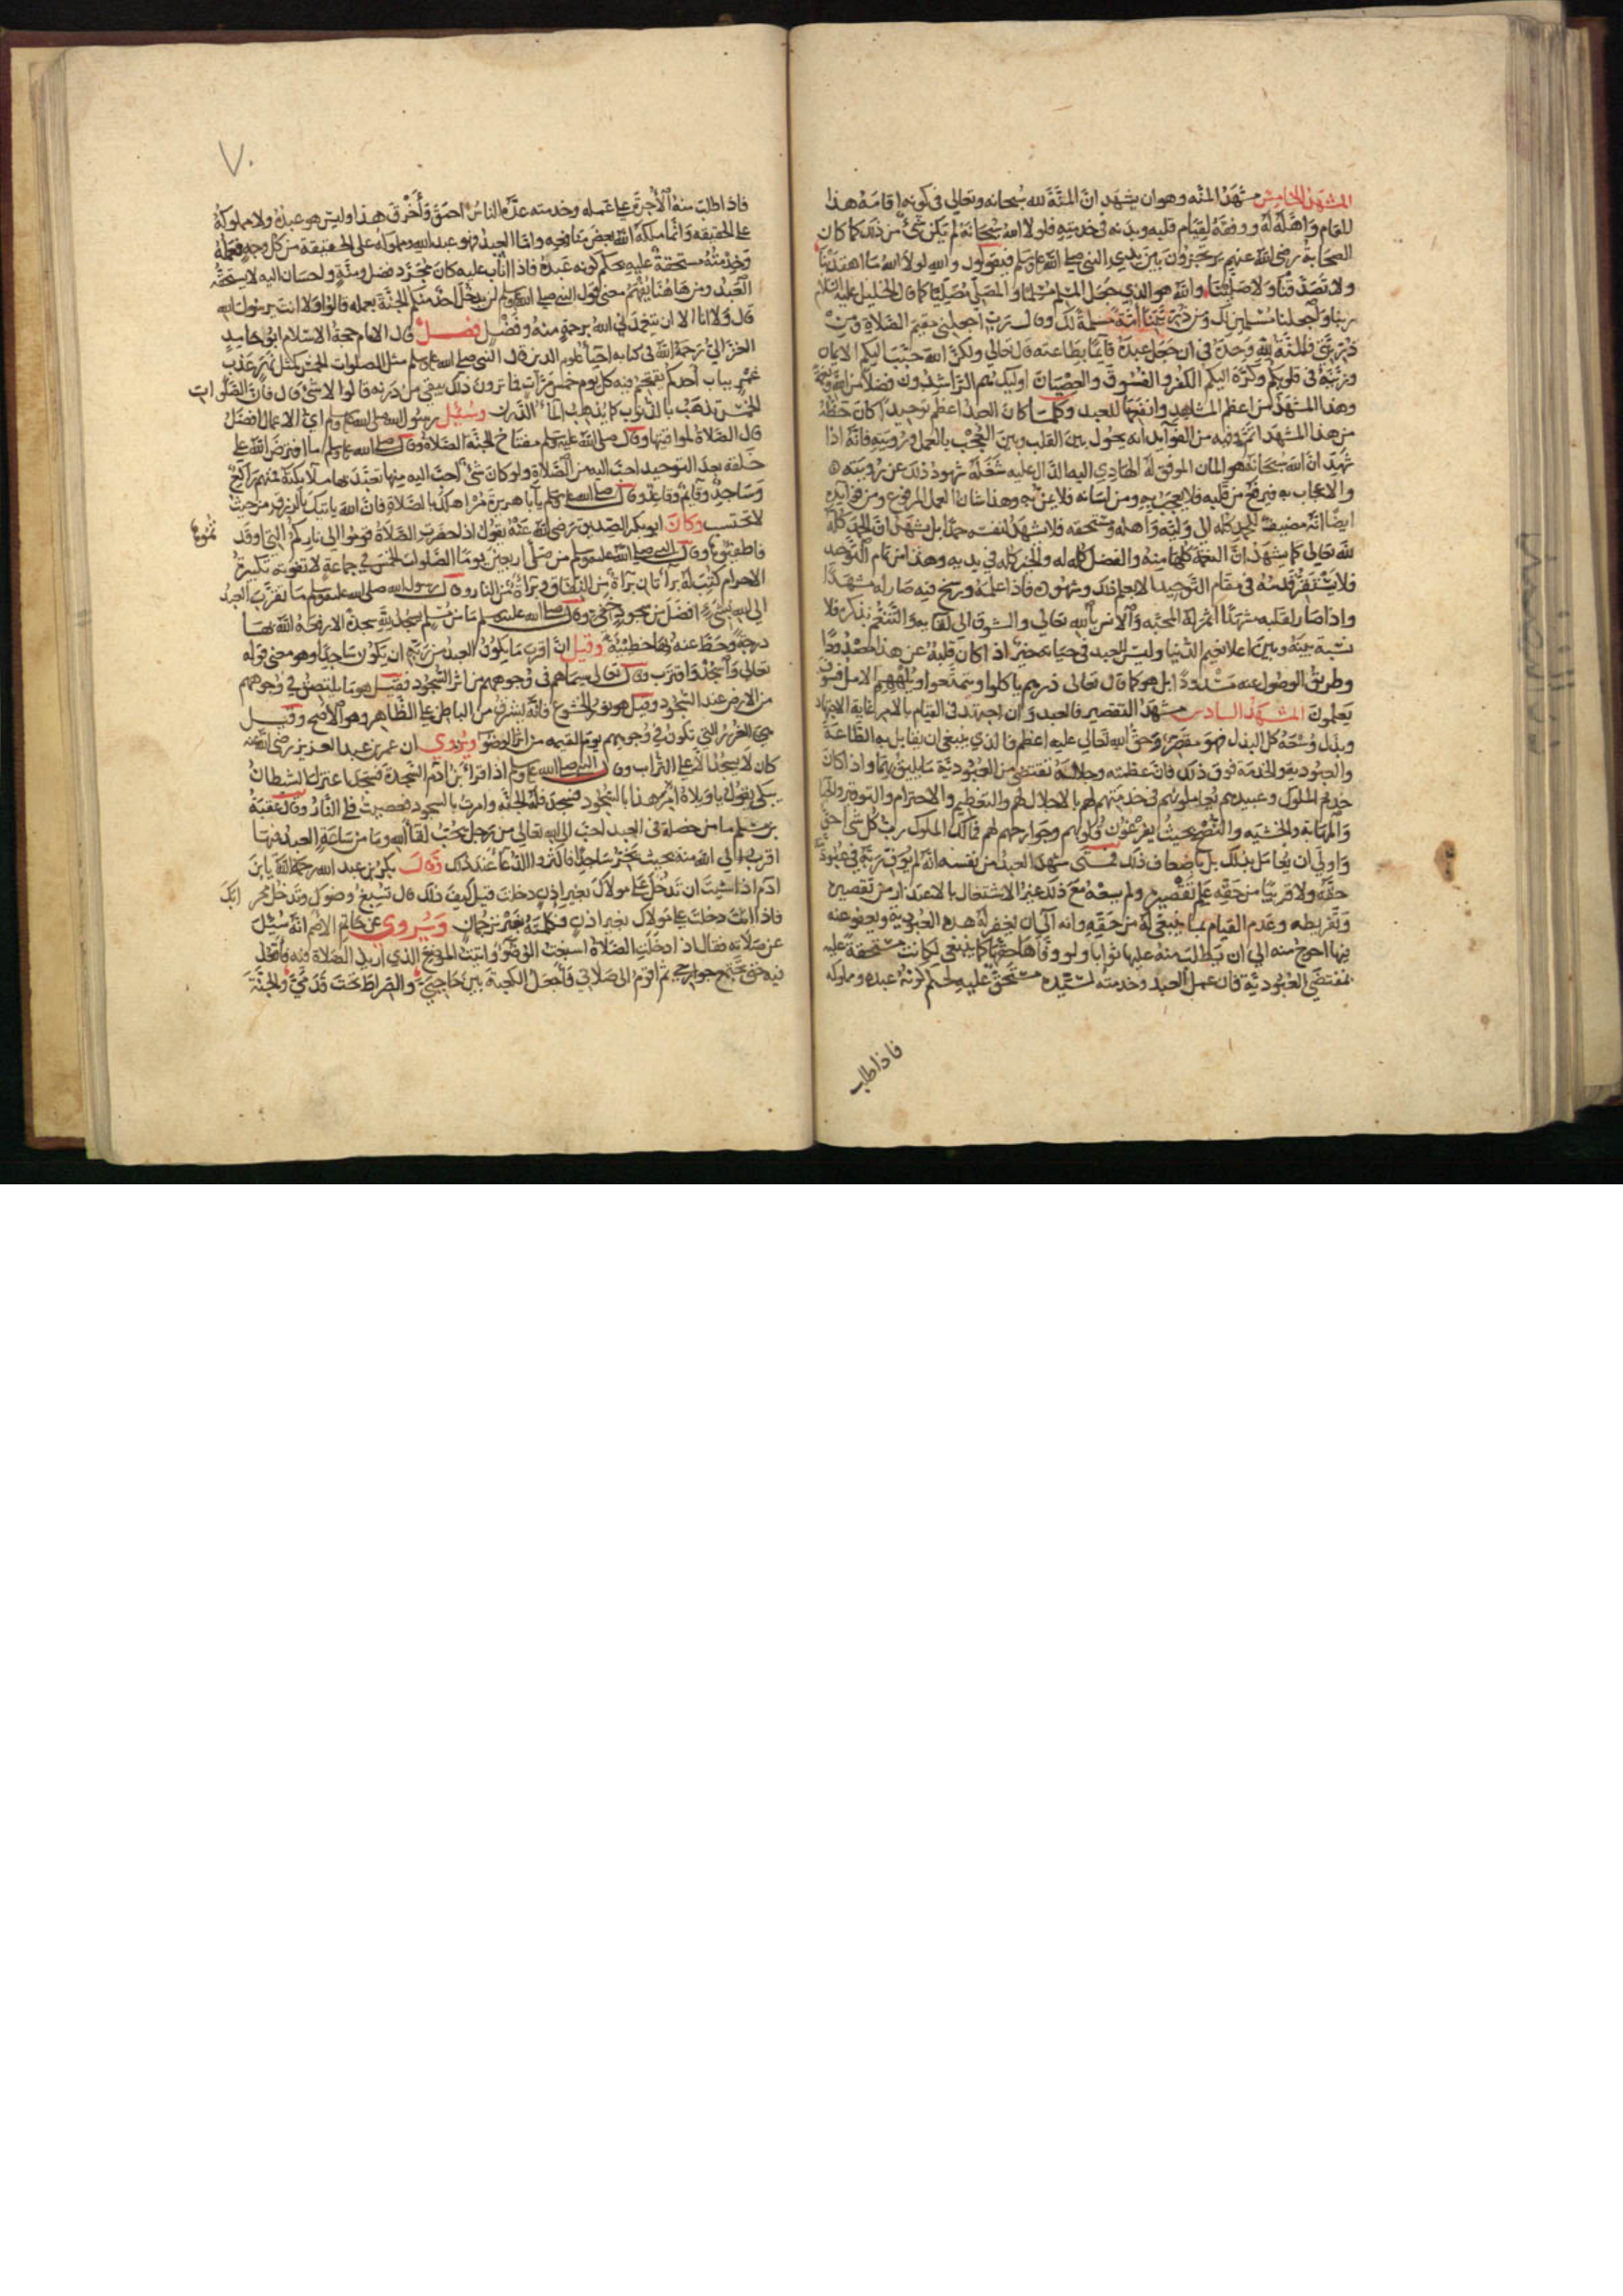 المشهد الخامس مشهد المنه وهو ان يشهد ان المنة لله سبحانه وتعالى في كونه اقامه هذا
المقام واهله له ووفقه لقيام قلبه وبدنه في خدمته فلولا الله سبحانه لم يكن شئ من ذلك كما كان
الصحابة رضي الله عنهم يرتجزون بين يدي النبي صلى الله عليه وسلم فيقولون والله لولا الله ما اهتدينا
ولا تصدقنا ولا صلينا والله هو الذي جعل المسلم مسلما والمصلي مصليا كما قال الخليل عليه السلام
ربنا واجعلنا مسلمين لك ومن ذريتنا امة مسلمة لك وقال رب اجعلني مقيم الصلاة ومن
ذريتي فالمنة لله وحده في ان جعل عبده قايما بطاعته قال تعالى ولكن الله حبب اليكم الايمان
وزينه في قلوبكم وكره اليكم الكفر والفسوق والعصيان اوليك هم الراشدون فضلا من الله ونعمة
وهذا المشهد من اعظم المشاهد وانفعها للعبد وكلما كان العبد اعظم توحيدا كان حظه
من هذا المشهد اتم وفيه من الفوآيد انه يحول بين القلب وبين العجب بالعمل ورويته فانه اذا
شهد ان الله سبحانه هو المان الموفق له الهادي اليه الدال عليه شغله شهود ذلك عن رويته
والاعجاب به فيرفع من قلبه فلا يعجب به ومن لسانه فلا يمن به وهذا شان العمل المرفوع ومن فوآيده
ايضا انه مضيف الحمد كله الى وليه واهله ومستحقه فلا يشهد لنفسه حمدا بل يشهد ان الحمد كله
لله تعالى كما يشهد ان النعمة كلها منه والفضل كله له والخير كله في يديه وهذا من تمام التوحيد
فلا يستقر قدمه في مقام التوحيد الا بعلم ذلك وشهوده فاذا علمه ورسخ فيه صار له مشهدا
واذا صار لقلبه مشهدا اثمر له المحبه والانس بالله تعالى والشوق الى لقايه والتنعم بذكره فلا
نسبة بينه وبين اعلا نعيم الدنيا وليس للعبد في حياته خير اذا كان قلبه عن هذا مصدودا
وطريق الوصول عنه مسدودا بل هو كما قال تعالى ذرهم ياكلوا ويتمتعوا ويلههم الامل فسوف
يعلمون المشهد السادس مشهد التقصير فالعبد وان اجتهد في القيام بالامر غاية الاجتهاد
وبذل وسعه كل البذل فهو مقصر وحق الله تعالى عليه اعظم والذي ينبغي ان يقابل به الطاعة
والعبوديه والخدمة فوق ذلك فان عظمته وجلاله تقتضي من العبودية ما يليق بهما واذا كان
خدم الملوك وعبيدهم يعاملونهم في خدمتهم لهم بالاجلال لهم والتعظيم والاحترام والتوقير والحيا
والمهابة والخشيه والنصح بحيث يفرغون قلوبهم وجوارحهم لهم فمالك الملوك رب كل شئ احق
واولى ان يعامل بذلك بل باضعاف ذلك فمتى شهد العبد من نفسه انه لم يوف ربه في عبوديته
حقه ولا قريبا من حقه علم تقصيره ولم يسعه مع ذلك غير الاشتغال بالاعتذار من تقصيره
وتفريطه وعدم القيام بما ينبغي له من حقه وانه الى ان يغفر له هذه العبودية ويعفو عنه
فيها احوج منه الى ان يطلب منه عليها ثوابا ولو وفاها حقها كما ينبغي لكانت مستحقة عليه
بمقتضى العبودية فان عمل العبد وخدمته لسيده مستحق عليه لحكم كونه عبده ومملوكه
فاذا طلب
٧٠
فاذا طلب منه الاجرة على عمله وخدمته عده الناس احمق واخرق هذا وليس هو عبده ولا مملوكه
على الحقيقه وانما ملكه الله بعض منافعه واما العبد فهو عبد الله ومملوكه على الحقيقة من كل وجه فعمله
وخدمته مستحقة عليه بحكم كونه عبده فاذا اثابه عليه كان مجرد فضل ومنة واحسان اليه لا يستحقه
العبد ومن هاهنا يفهم معنى قول النبي صلى الله عليه وسلم لن يدخل احد منكم الجنة بعمله قالوا ولا انت يرسول الله
قال ولا انا الا ان يتغمدني الله برحمة منه وفضل فصل قال الامام حجة الاسلام ابو حامد
الغزالي رحمة الله في كتابه احيا علوم الدين قال النبي صلى الله عليه وسلم مثل الصلوات الخمس كمثل نهر عذب
غمر بباب احدكم يقتحم فيه كل يوم خمس مرات فما ترون ذلك يبقي من درنه قالوا لا شئ قال فان الصلوات
الخمس تذهب بالذنوب كما يذهب الماء الدرن وسئل رسول الله صلى الله عليه وسلم اي الاعمال افضل
قال الصلاة لمواقيتها وقال صلى الله عليه وسلم مفتاح الجنة الصلاة وقال صلى الله عليه وسلم ما افترض الله على
خلقه بعد التوحيد احب اليه من الصلاة ولو كان شئ احب اليه منها تعبد بها ملائكته فمنهم راكع
وساجد وقايم وقاعد وقال صلى الله عليه وسلم يآبا هريرة مر اهلك بالصلاة فان الله ياتيك بالرزق من حيث
لا تحتسب وكان ابو بكر الصديق رضى الله عنه يقول اذا حضرت الصلاة قوموا الى ناركم التي اوقد
تموها
فاطفئوها وقال النبي صلى الله عليه وسلم من صلى اربعين يوما الصلوات الخمس في جماعة لا تفوته تكبيرة
الاحرام كتب له برآتان برآة من النفاق وبرآة من النار وقال رسول الله صلى الله عليه وسلم ما تقرب العبد
الى الله بشيء افضل من سجود خفي وقال صلى الله عليه وسلم ما من مسلم يسجد لله سجدة الا رفعه الله بها
درجة وحط عنه بها خطيئة وقيل ان اقرب ما يكون العبد من ربه ان يكون ساجدا وهو معنى قوله
تعالى واسجد واقترب وقال تعالى سيماهم في وجوههم من اثر السجود فقيل هو ما يلتصق في وجوههم
من الارض عند السجود وقيل هو نور الخشوع فانه يشرق من الباطن على الظاهر وهو الاصح وقيل
هي الغرر التي تكون في وجوههم يوم القيمه من اثر الوضوء ويروي ان عمر بن عبد العزيز رضي الله عنه
كان لا يسجد الا على التراب وقال النبي صلى الله عليه وسلم اذا قرا ابن ادم السجدة فسجد اعتزل الشيطان
يبكي يقول ياويلاه امر هذا بالسجود فسجد فله الجنه وامرت بالسجود فعصيت فلي النار وقال عقبة
بن مسلم ما من خصلة في العبد احب الى الله تعالى من رجل يحب لقا الله وما من ساعة العبد فيها
اقرب الى الله منه بحيث يخر ساجدا فاكثروا الدعا عند ذلك وقال بكر بن عبد الله رحمة الله يا بن
ادم اذا شيت ان تدخل على مولاك بغير اذن دخلت قيل كيف ذلك قال تسبغ وضوك وتدخل محرابك
فاذا انت دخلت على مولاك بغير اذن فكلمته بغير ترجمان ويروي عن حاتم الاصم انه سئل
عن صلاته فقال اذا دخلت الصلاة اسبغت الوضوء واتيت الموضع الذي اريد الصلاة فيه فاقعد
فيه حتى تجتمع جوارحي ثم اقوم الى صلاتي فاجعل الكعبة بين حاجبي والصراط تحت قدمي والجنة